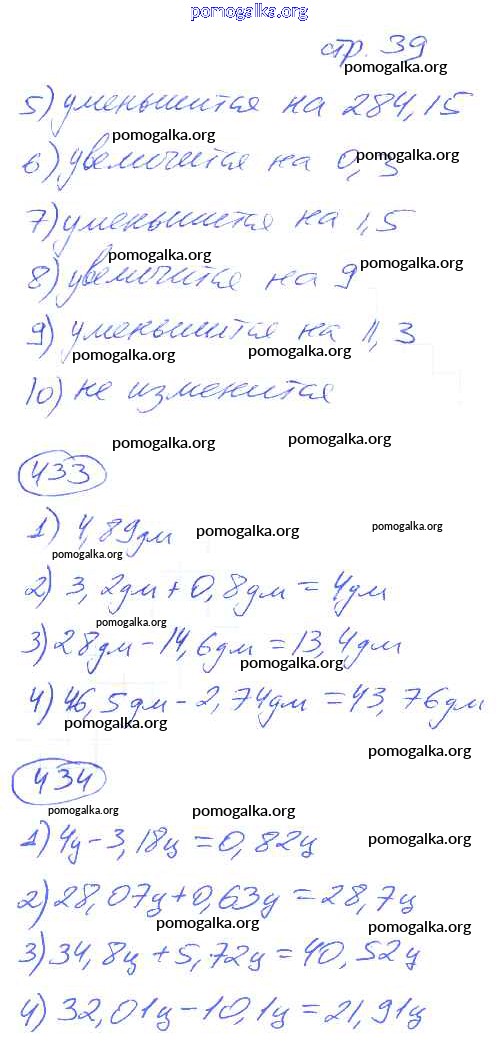 pomogalka.org
стр. 39
pomogalka.org
5) уменьшится на 284,15
pomogalka.org
6) увеличится на 0,3
pomogalka.org
7) уменьшится на 1,5
pomogalka.org
8) увеличится на 9
pomogalka.org
9) уменьшится на 11,3
pomogalka.org pomogalka.org
10) не изменится
pomogalka.org pomogalka.org
433
1) 4,89дм
pomogalka.org pomogalka.org
pomogalka.org
2) 3,2дм + 0,8дм = 4дм
pomogalka.org
3) 28дм - 14,6дм = 13,4дм
pomogalka.org
4) 46,5дм - 2,74дм = 43,76дм
pomogalka.org
pomogalka.org
434
pomogalka.org pomogalka.org
1) 4ц - 3,18ц = 0,82ц
pomogalka.org
2) 28,07ц + 0,63ц = 28,7ц
pomogalka.org pomogalka.org
3) 34,8ц + 5,72ц = 40,52ц
4) 32,01ц - 10,1ц = 21,91ц